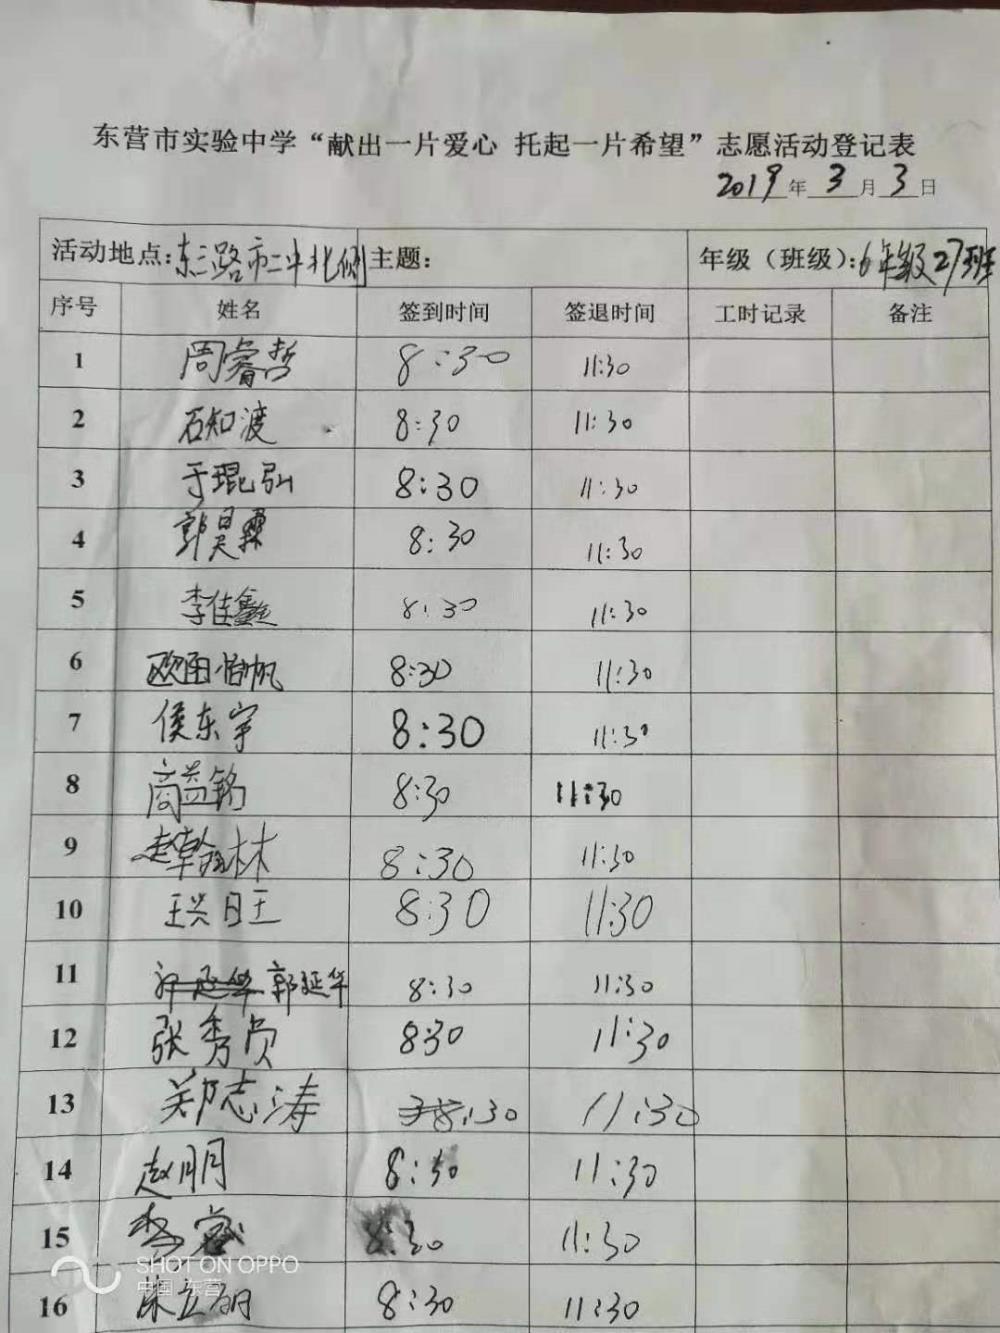 东营市实验中学“献出一片爱心 托起一片希望”志愿活动登记表
2019年3月3日
活动地点:东三路市二中北侧 主题: 年级（班级）:6年级27班
序号 姓名 签到时间 签退时间 工时记录 备注
1 周睿哲 8:30 11:30
2 石知渡 8:30 11:30
3 于琨弘 8:30 11:30
4 郭昊霖 8:30 11:30
5 李佳鑫 8:30 11:30
6 欧阳怡帆 8:30 11:30
7 侯东宇 8:30 11:30
8 商益铭 8:30 11:30
9 赵翰林 8:30 11:30
10 王兴旺 8:30 11:30
11 郭延华 8:30 11:30
12 张秀贞 830 11:30
13 郑志涛 8:30 11:30
14 赵明 8:30 11:30
15 8:30 11:30
16 8:30 11:30
SHOT ON OPPO
中国·东营